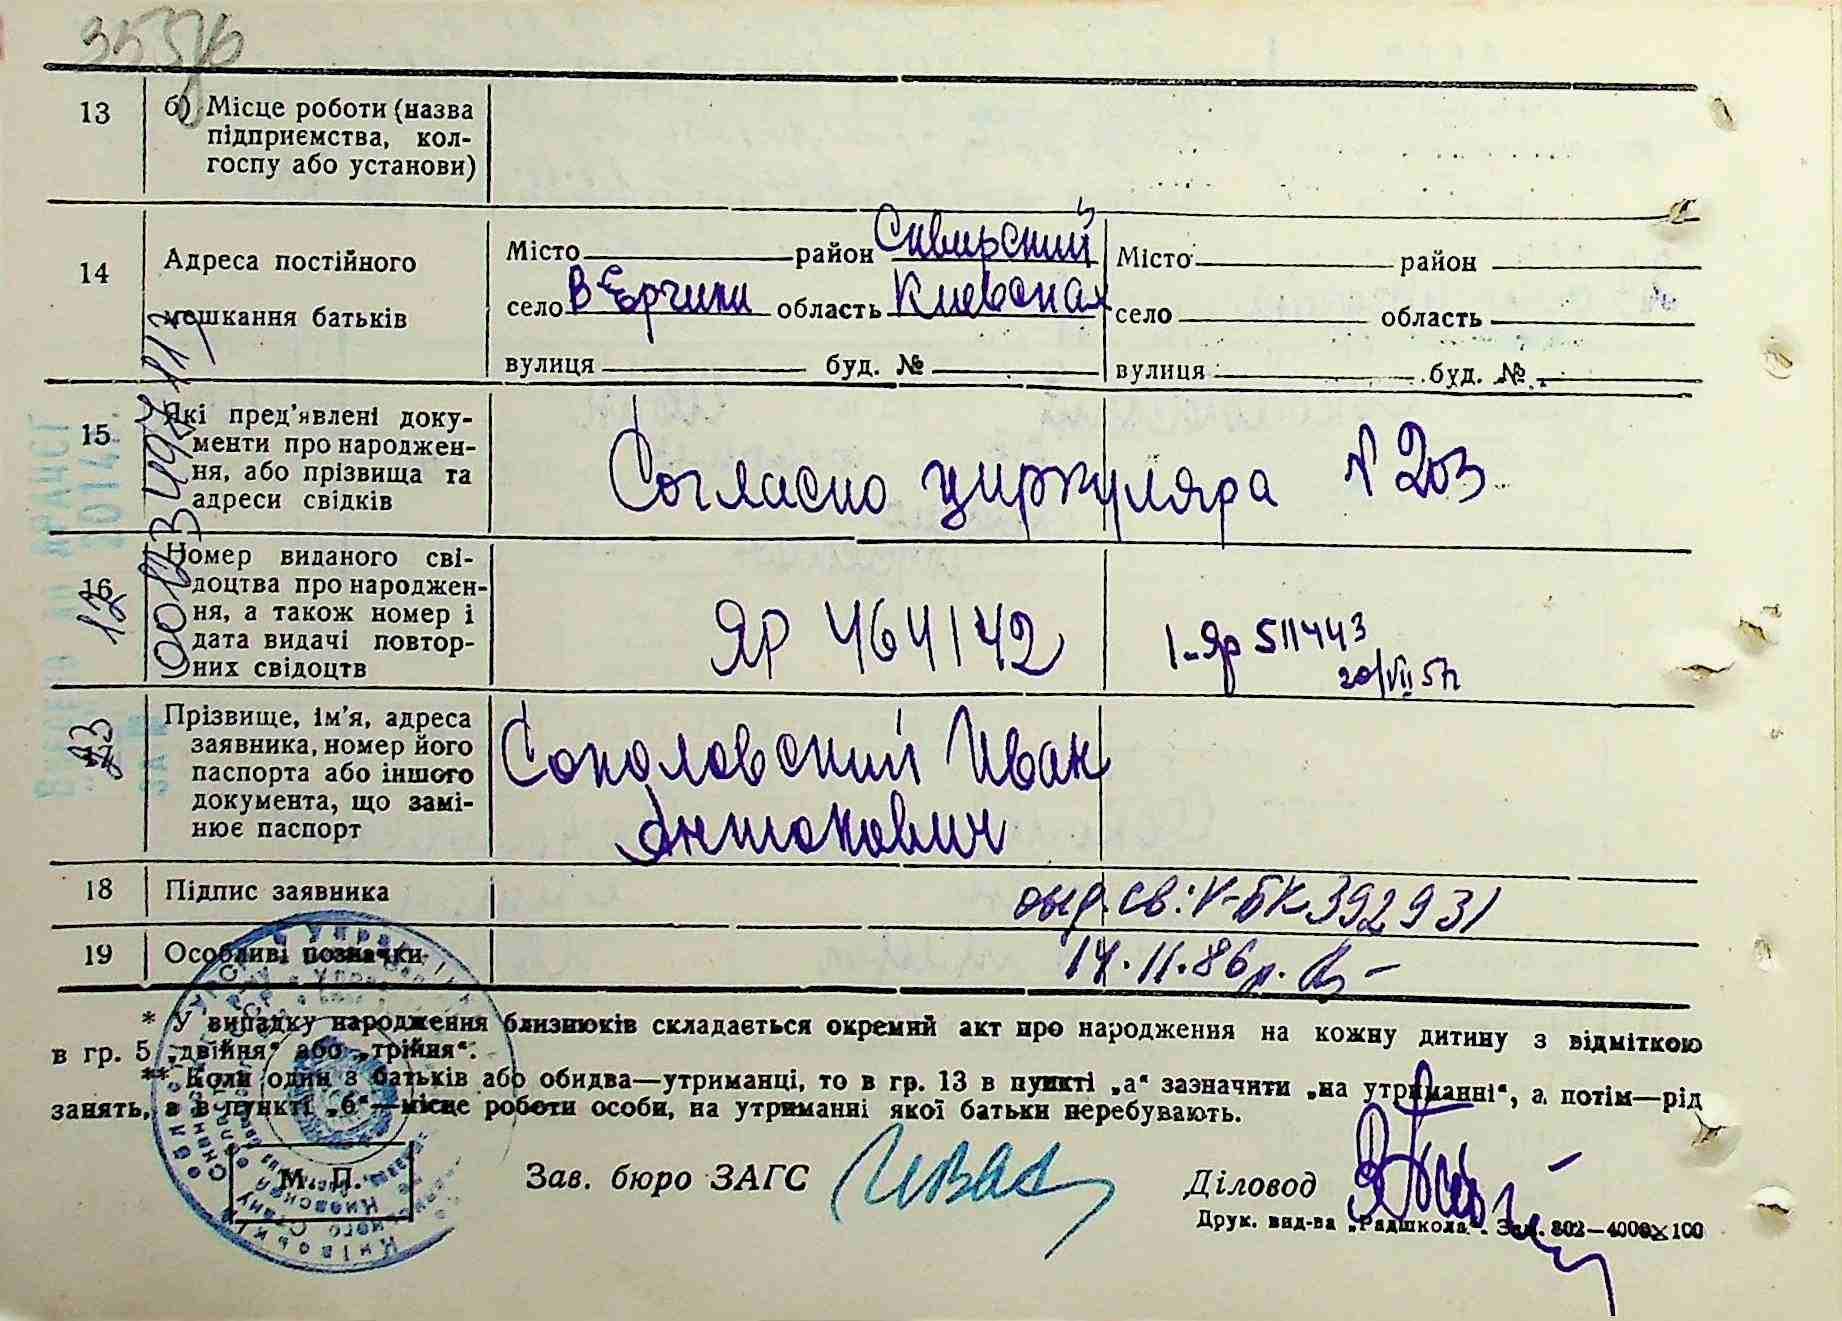 13
б) Місце роботи (назва
підприємства, кол-
госпу або установи)
14
Адреса постійного
мешкання батьків
Місто район Сквирский
село В Ерчики область Киевская
вулиця буд. №
Місто район
село область
вулиця буд. №
15
Які пред'явлені доку-
менти про народжен-
ня, або прізвища та
адреси свідків
Согласно циркуляра № 203
16
Номер виданого сві-
доцтва про народжен-
ня, а також номер і
дата видачі повтор-
них свідоцтв
ЯР 464142
I-Яр 511443
20/VII 57г
Прізвище, ім'я, адреса
заявника, номер його
паспорта або іншого
документа, що замі-
нює паспорт
Соколовский Иван
Антонович
18
Підпис заявника
выд. св: V-БК 392931
19
Особливі позначки
14.11.86р.
* У випадку народження близнюків складається окремий акт про народження на кожну дитину з відміткою
в гр. 5 „двійня“ або „трійня“.
** Коли один з батьків або обидва—утриманці, то в гр. 13 в пункті „а“ зазначити „на утриманні“, а потім—рід
занять, а в пункті „б“—місце роботи особи, на утриманні якої батьки перебувають.
М. П.
Зав. бюро ЗАГС
Діловод
Друк. вид-ва „Радшкола“. Зам. 802—4000×100